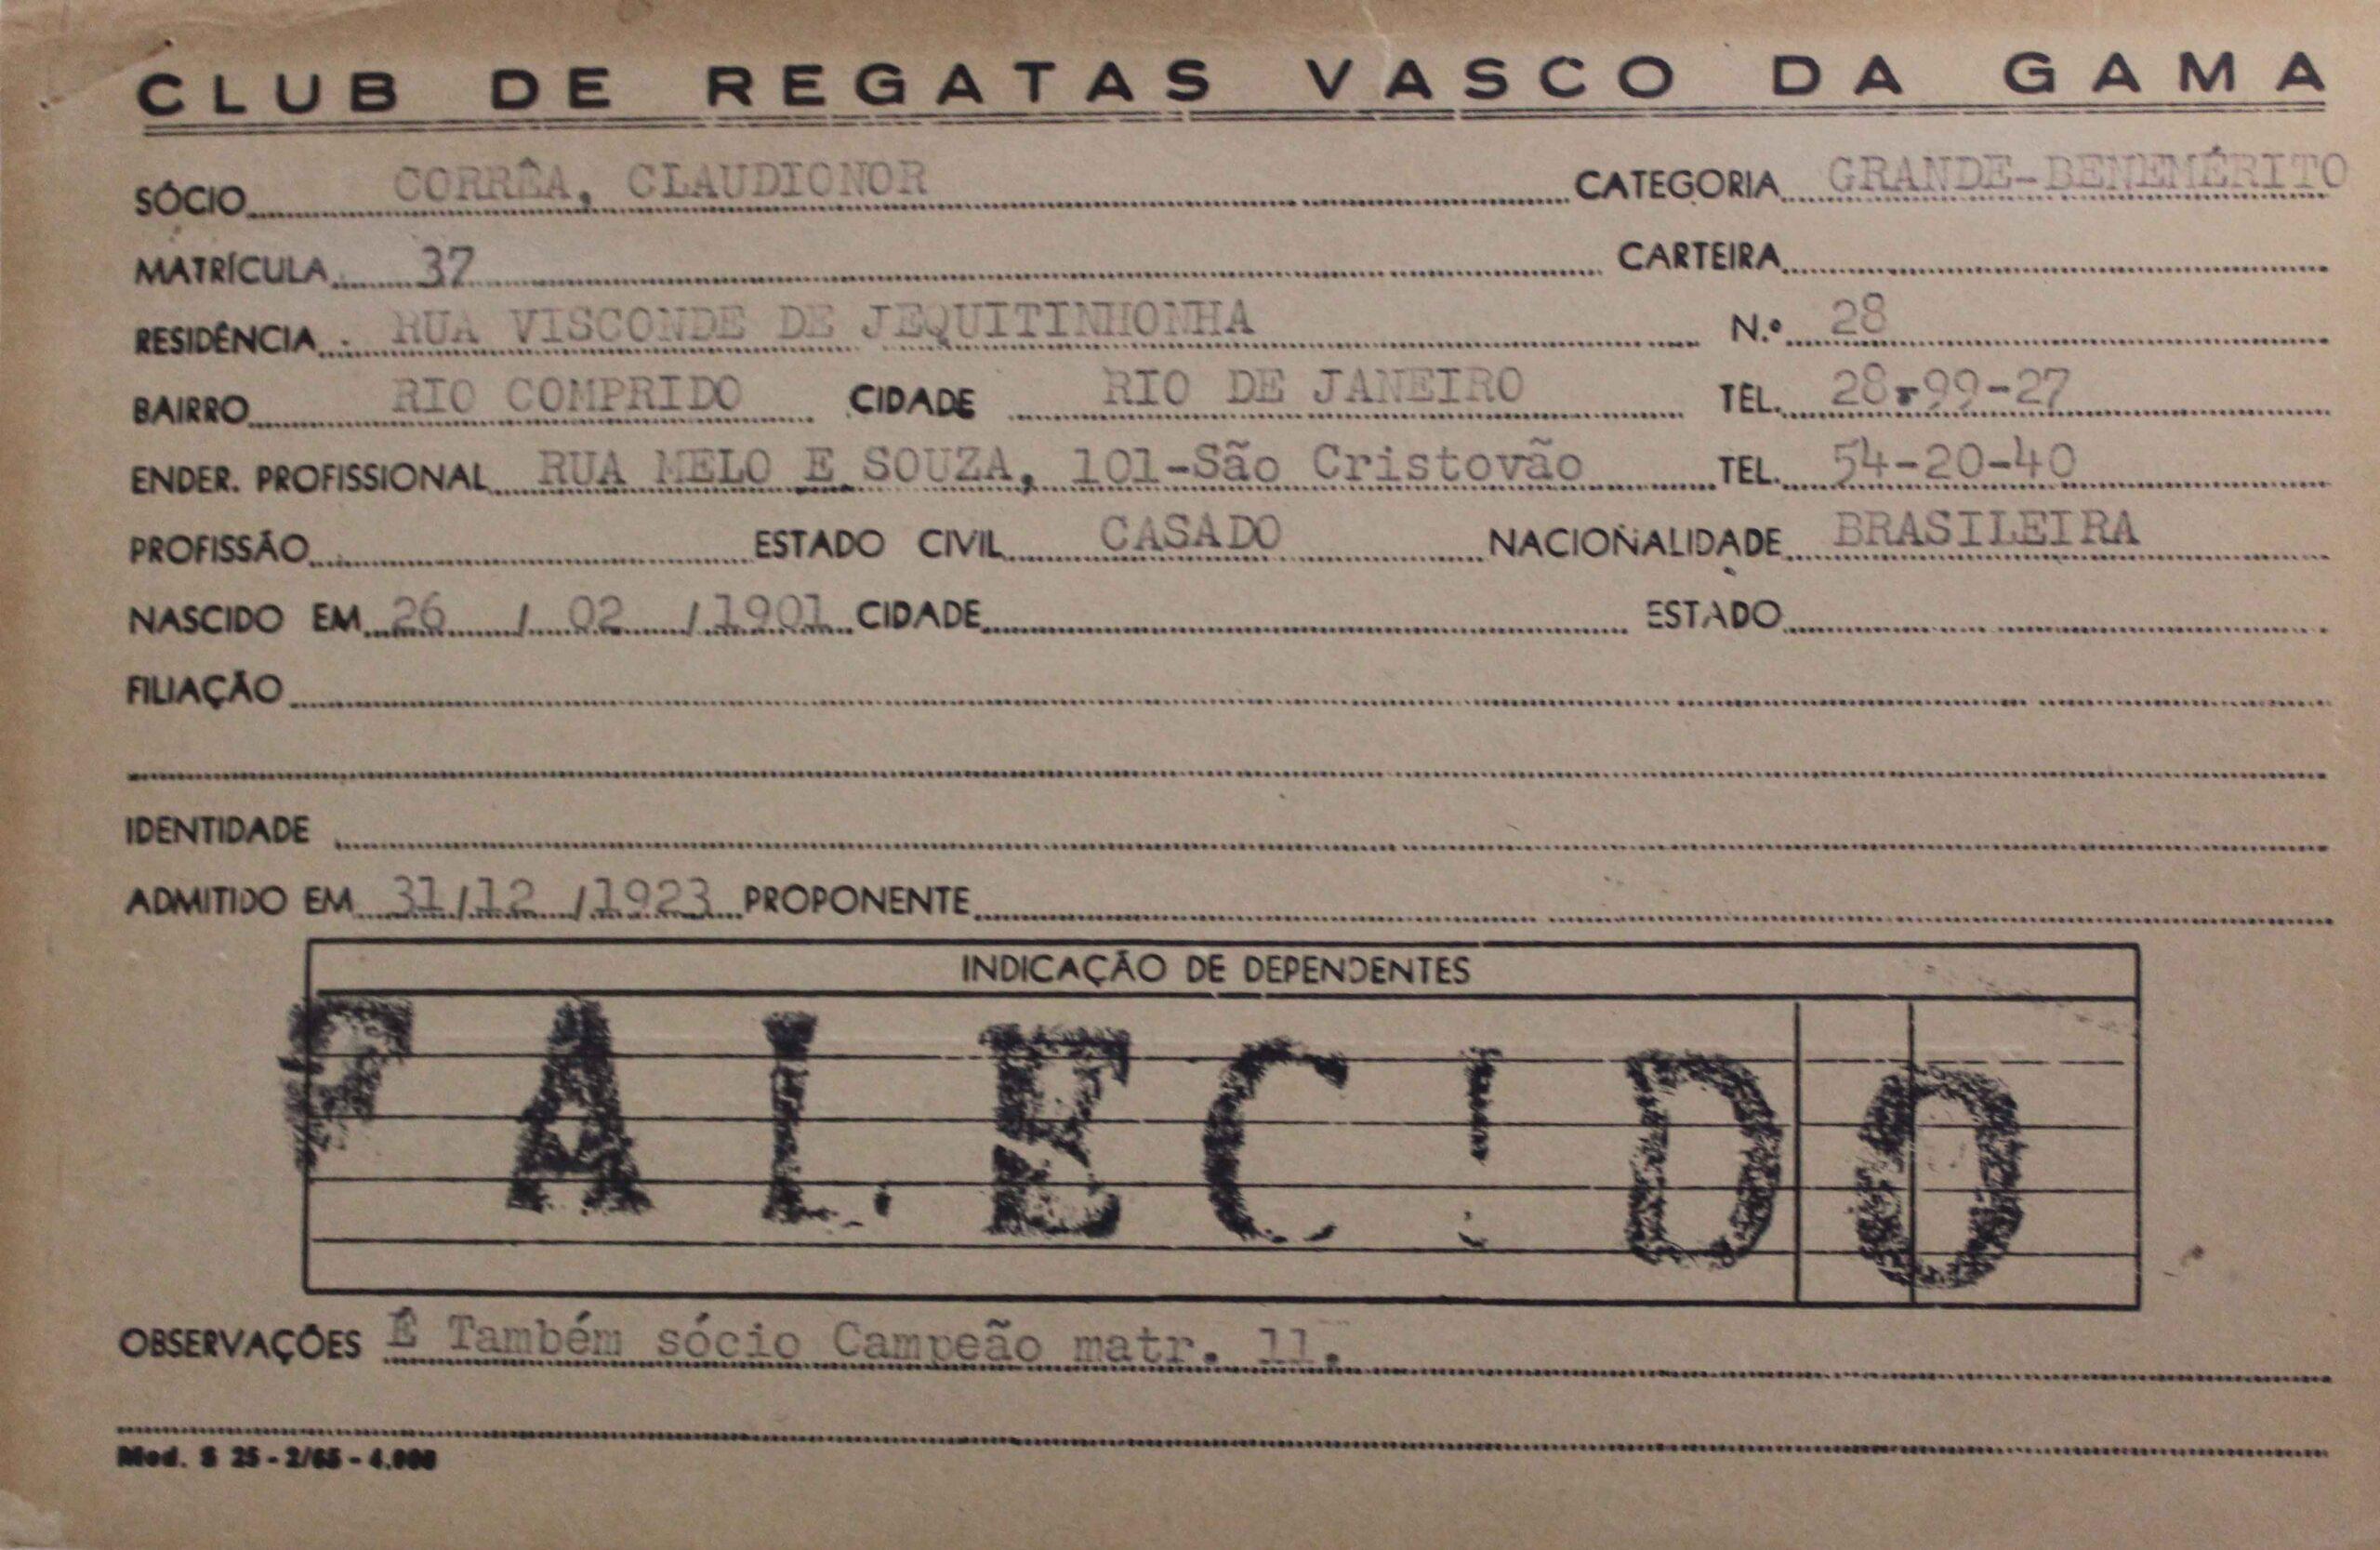 CLUB DE REGATAS VASCO DA GAMA
SÓCIO CORRÊA, CLAUDIONOR CATEGORIA GRANDE-BENEMÉRITO
MATRÍCULA 37 CARTEIRA
RESIDÊNCIA RUA VISCONDE DE JEQUITINHONHA N.º 28
BAIRRO RIO COMPRIDO CIDADE RIO DE JANEIRO TEL. 28-99-27
ENDER. PROFISSIONAL RUA MELO E SOUZA, 101-São Cristovão TEL. 54-20-40
PROFISSÃO ESTADO CIVIL CASADO NACIONALIDADE BRASILEIRA
NASCIDO EM 26 / 02 / 1901 CIDADE ESTADO
FILIAÇÃO
IDENTIDADE
ADMITIDO EM 31/12/1923 PROPONENTE
INDICAÇÃO DE DEPENDENTES
FALECIDO
OBSERVAÇÕES É Também sócio Campeão matr. 11.
Mod. S 25 - 2/65 - 4.000